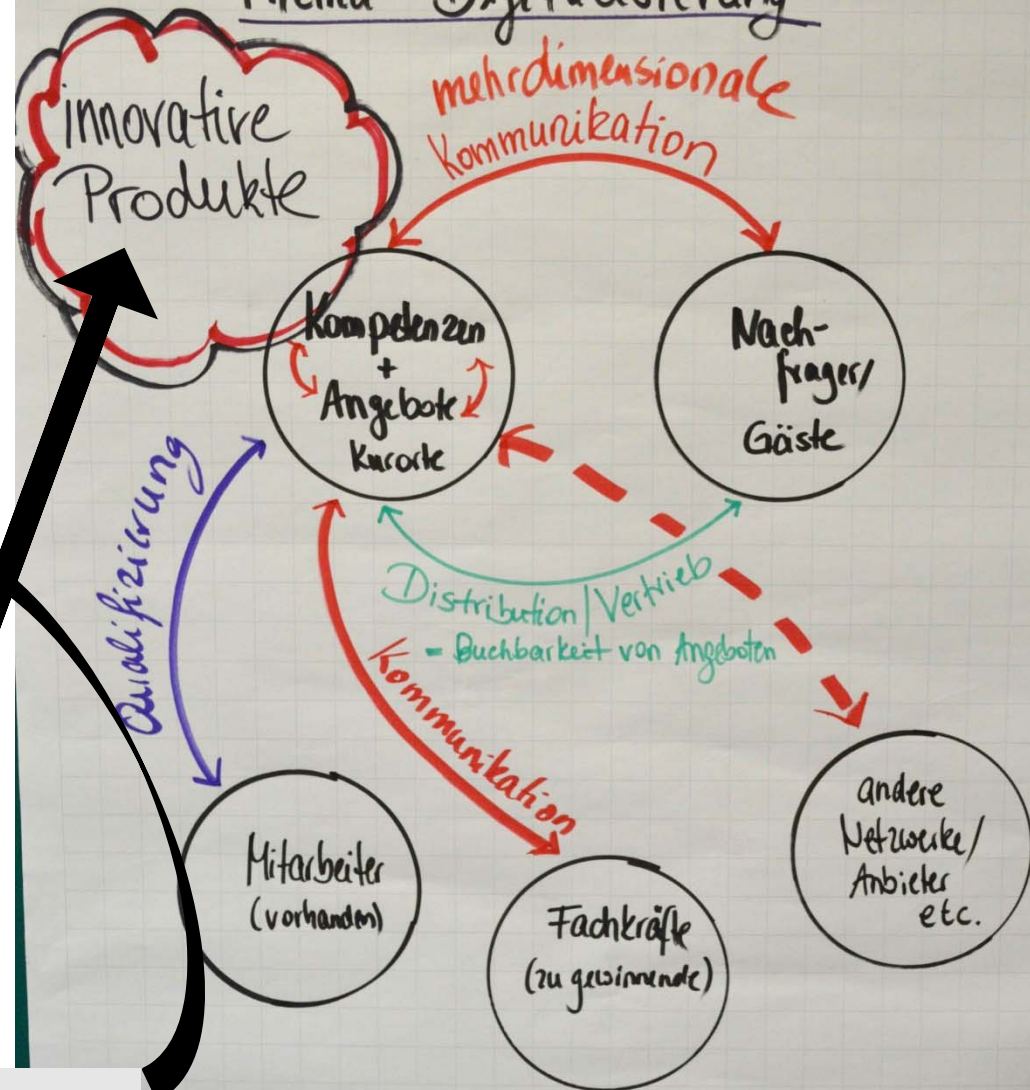 Thema Digitalisierung
mehrdimensionale
Kommunikation
innovative
Produkte
Kompetenzen
+
Angebote
Kurorte
Nach-
frager/
Gäste
Qualifizierung
Distribution/Vertrieb
- Buchbarkeit von Angeboten
Kommunikation
Mitarbeiter
(vorhanden)
Fachkräfte
(zu gewinnende)
andere
Netzwerke/
Anbieter
etc.